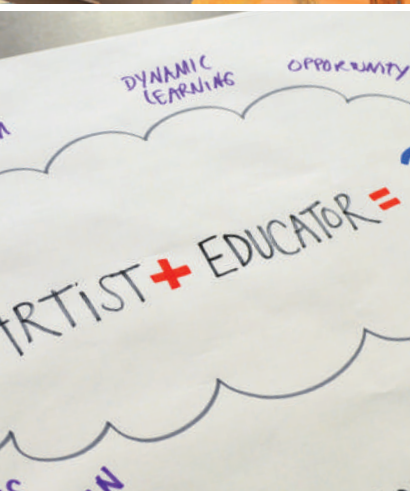 DYNAMIC
LEARNING
OPPORUNITY
ARTIST + EDUCATOR =